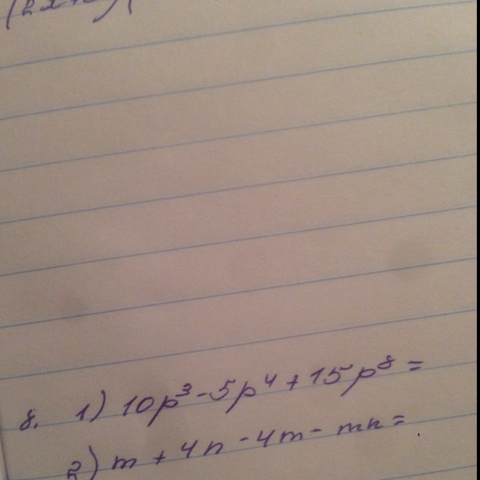 8. 1) 10p³-5p⁴+15p⁸=
2) m+4n-4m-mn=